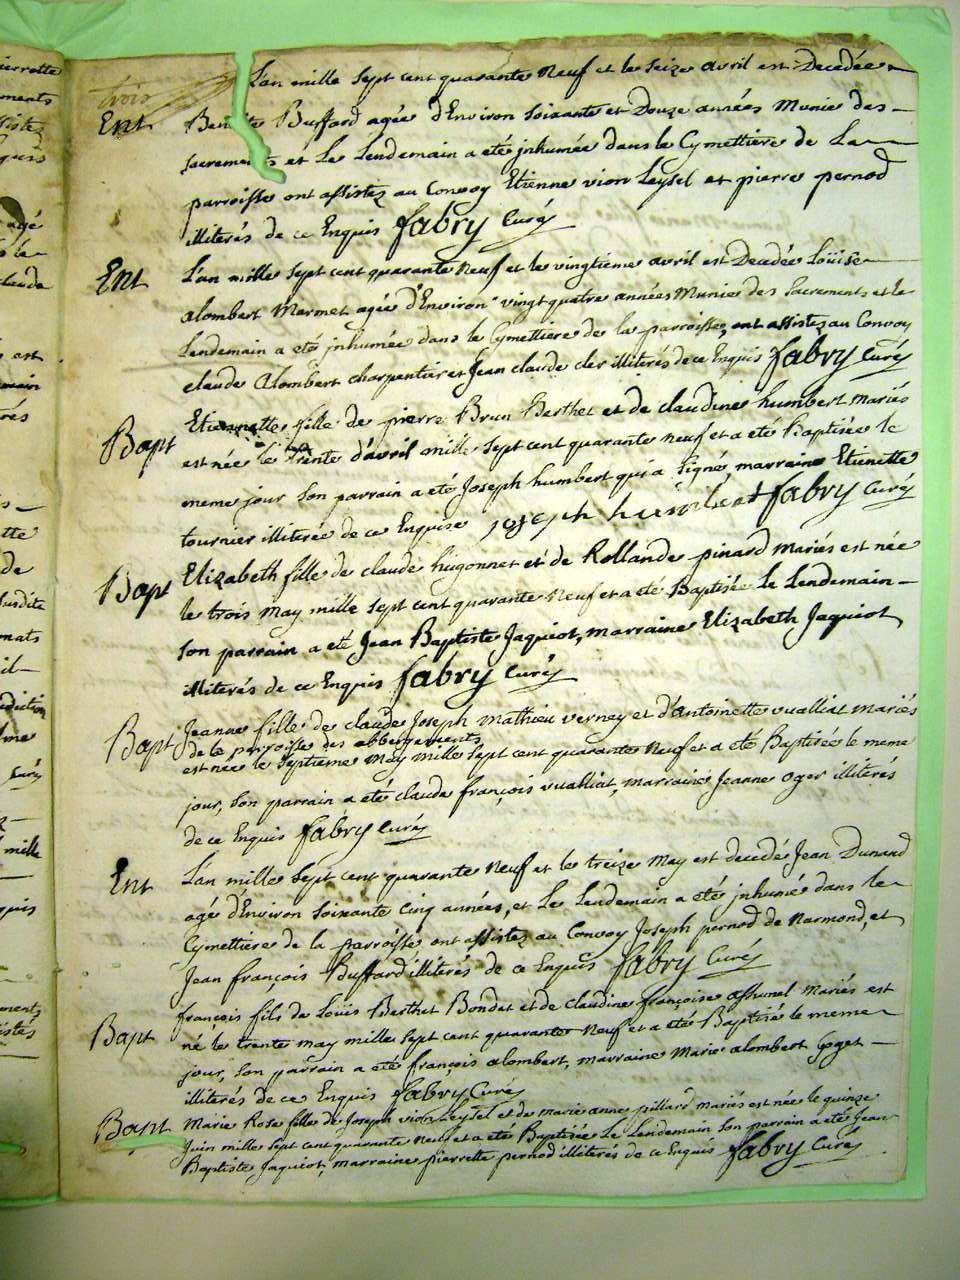 trois
Ent
L'an mille sept cent quarante neuf et le seize avril est Decedée
Buffard agée d'Environ soixante et Douze années Munie des
sacrements et Le Lendemain a eté jnhumée dans le Cymettiere de La
parroisse ont assistez au Convoy Etienne vion Leysel et pierre pernod
illiterés de ce Enquis fabry Curé
Ent
L'an mille sept cent quarante neuf et le vingtieme avril est Decedée Loüise
alombert Marmet agée d'Environ vingt quatre années Munie des Sacrements et le
Lendemain a eté jnhumée dans le Cymettiere de la parroisse, ont assistez au Convoy
claude Alombert charpentier et Jean claude cler illiterés de ce Enquis fabry Curé
Bapt
fille de pierre Brun Berthet et de claudine humbert mariés
est née le trente d'avril mille sept cent quarante neuf et a eté Baptisée le
meme jour son parrain a eté Joseph humbert qui a signé, marraine Etienette
tournier illiterée de ce Enquise joseph humbert fabry Curé
Bapt
Elizabeth fille de claude hugonnet et de Rollande pinard Mariés est née
le trois may mille sept cent quarante Neuf et a eté Baptisée Le Lendemain
son parrain a eté Jean Baptiste Jaquiot, marraine Elizabeth Jaquiot
illiterés de ce Enquis fabry Curé
Bapt
Jeanne fille de claude Joseph mathieu verney et d'antoinette vualliat mariés
de la parroisse des abbergements
est née le septieme may mille sept cent quarante Neuf et a eté Baptisée le meme
jour, son parrain a eté claude françois vualliat, marraine Jeanne oger illiterés
de ce Enquis fabry Curé
Ent
L'an mille sept cent quarante Neuf et le treize May est decedé Jean Dunand
agé d'Environ soixante cinq années, et Le Lendemain a eté jnhumé dans le
Cymettiere de la parroisse ont assistez au Convoy Joseph pernod de Narmond, et
Jean françois Buffard illiterés de ce Enquis fabry Curé
Bapt
françois fils de Loüis Berthet Bondet et de claudine françoise Mariés est
né le trente may mille sept cent quarante Neuf et a eté Baptisé le meme
jour, son parrain a eté françois alombert, marraine Marie alombert Goget
illiterés de ce Enquis fabry Curé
Bapt
Marie Rose fille de Joseph vion Leysel et de marie anne pillard mariés est née le quinze
Juin mille sept cent quarante neuf et a eté Baptisée Le Lendemain son parrain a eté Jean
Baptiste Jaquiot, marraine pierrette pernod illiterés de ce Enquis fabry Curé